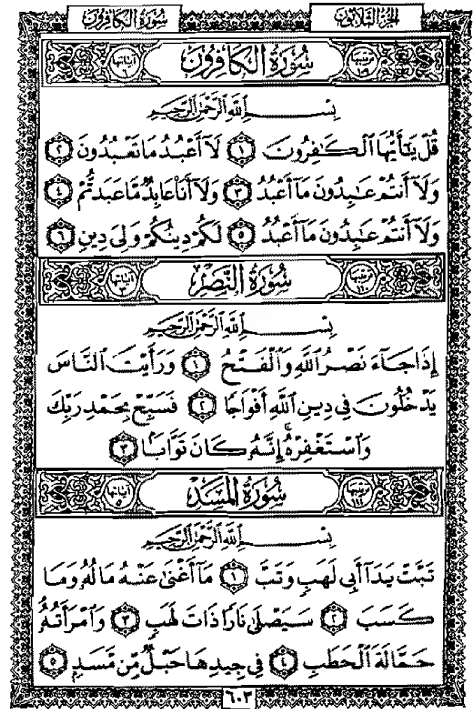 الجزء الثلاثون
سورة الكافرون
ترتيبها ١٠٩
سُورَةُ الكَافِرُونَ
آياتها ٦
بِسْمِ ٱللَّهِ ٱلرَّحْمَٰنِ ٱلرَّحِيمِ
قُلْ يَٰٓأَيُّهَا ٱلْكَٰفِرُونَ ١ لَآ أَعْبُدُ مَا تَعْبُدُونَ ٢
وَلَآ أَنتُمْ عَٰبِدُونَ مَآ أَعْبُدُ ٣ وَلَآ أَنَا۠ عَابِدٌ مَّا عَبَدتُّمْ ٤
وَلَآ أَنتُمْ عَٰبِدُونَ مَآ أَعْبُدُ ٥ لَكُمْ دِينُكُمْ وَلِيَ دِينِ ٦
ترتيبها ١١٠
سُورَةُ النَّصْرِ
آياتها ٣
بِسْمِ ٱللَّهِ ٱلرَّحْمَٰنِ ٱلرَّحِيمِ
إِذَا جَآءَ نَصْرُ ٱللَّهِ وَٱلْفَتْحُ ١ وَرَأَيْتَ ٱلنَّاسَ
يَدْخُلُونَ فِى دِينِ ٱللَّهِ أَفْوَاجًا ٢ فَسَبِّحْ بِحَمْدِ رَبِّكَ
وَٱسْتَغْفِرْهُ ۚ إِنَّهُۥ كَانَ تَوَّابًۢا ٣
ترتيبها ١١١
سُورَةُ المَسَدِ
آياتها ٥
بِسْمِ ٱللَّهِ ٱلرَّحْمَٰنِ ٱلرَّحِيمِ
تَبَّتْ يَدَآ أَبِى لَهَبٍ وَتَبَّ ١ مَآ أَغْنَىٰ عَنْهُ مَالُهُۥ وَمَا
كَسَبَ ٢ سَيَصْلَىٰ نَارًا ذَاتَ لَهَبٍ ٣ وَٱمْرَأَتُهُۥ
حَمَّالَةَ ٱلْحَطَبِ ٤ فِى جِيدِهَا حَبْلٌ مِّن مَّسَدٍۭ ٥
٦٠٣